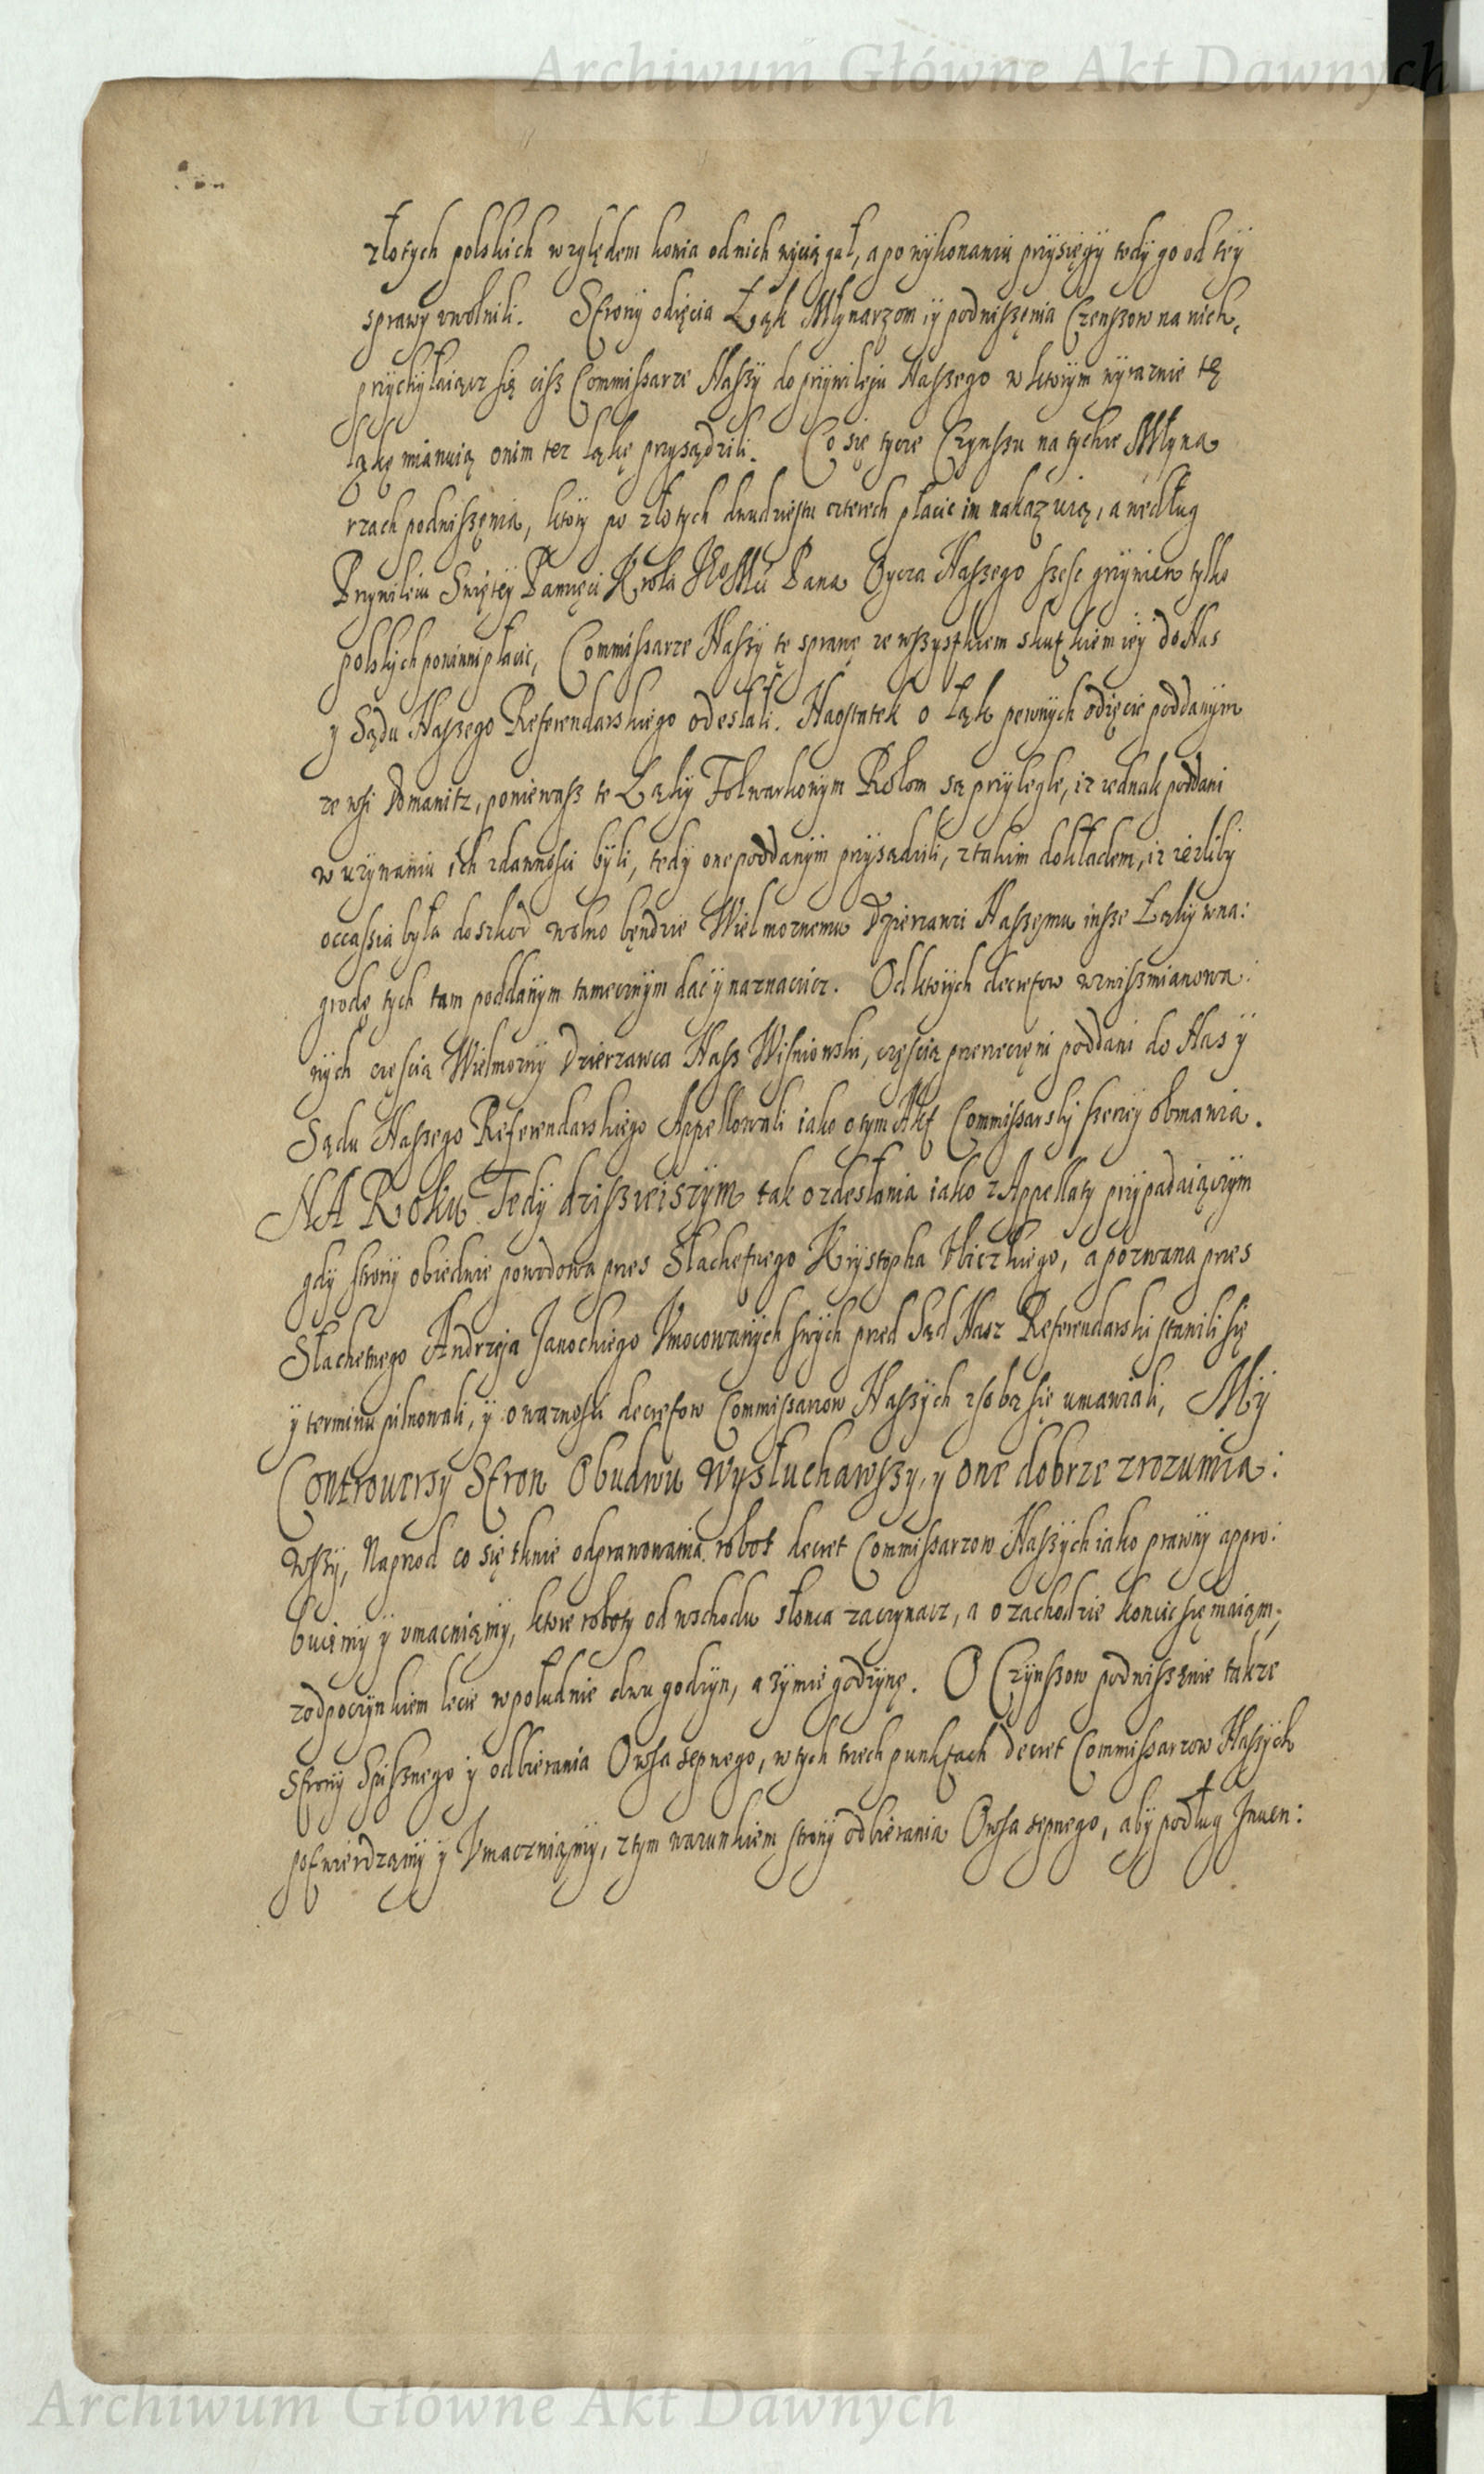 Archiwum Główne Akt Dawnych
złotych polskich względem konia od nich wyciągał, a po wykonaniu przysięgy tedy go od tey
sprawy vwolnili. Strony odięcia Łąk Młynarzom iy podniszęnia Czenszow na nich,
przychyłaiącz się cisz Commissarze Naszy do przywileju Naszego w ktorym wyraznie tę
łąkę mianuią onim tez łąkę przysądzili. Co się tycze Czynszu na tychze Młyna
rzach podniszęnia, ktory po złotych dwudziestu czterech płacic im nakazuią, a według
Przywileiu Swiętey Pamięci Krola Pana Oyca Naszego szesc grzywien tylko
polskych powinni płacic, Commissarze Naszy tę sprawę ze wszystkiem skutkiem iey do Nas
y Sądu Naszego Referendarskiego odesłali. Naostatek o Łąk pewnych odięcie poddanym
ze wsi Domanitz, poniewasz te Łąky Folwarkowym Rolom są przyległe, iz iednak poddani
w uzywaniu ich zdawnosci byli, tedy one poddanym przysądzili, z takim dokładem, iz iezliby
occassia była do szkod wolno bęndzie Wielmoznemu Dzierzawci Naszemu insze Łąky wna:
grodę tych tam poddanym tamecznym dac y naznaczicz. Od ktorych decretow wznisz mianowa:
nych częscią Wielmozny Dzierzawca Nasz Wisniowski, częscią przerzeczęni poddani do Nas y
Sądu Naszego Referendarskiego Appellowali iako o tym Akt Commissarsky szerzey obmawia.
NA Roku Tedy dzisieiszym tak z odesłania iako z Appellaty przypadaiączym
gdy strony obiedwie powodowa przes Slachetnego Krystopha Vbiczkiego, a pozwana przes
Slachetnego Andrzeja Janockiego Vmocowanych swych przed Sąd Nasz Referendarski stanili się
y terminu pilnowali, y o waznosci decretow Commissarzow Naszych z sobą się umawiali, My
Controuersy Stron Obudwu wysłuchawszy, y one dobrze zrozumia:
wszy, Naprzod co się tknie odprawowania robot decret Commissarzow Naszych iako prawny appro:
buięmy y vmacniąmy, ktore roboty od wschodu słonca zaczynacz, a o zachodzie koncic się maią;
z odpoczynkiem lecie w południe dwu godzyn, a zymie godzynę. O Czynszow podniszęnie takze
Strony Spisznego y odbierania Owsa sepnego, w tych trzech punktach decret Commissarzow Naszych
potwierdzamy y Vmaczniąmy, z tym warunkiem strony odbierania Owsa sepnego, aby podług Inuen:
Archiwum Główne Akt Dawnych